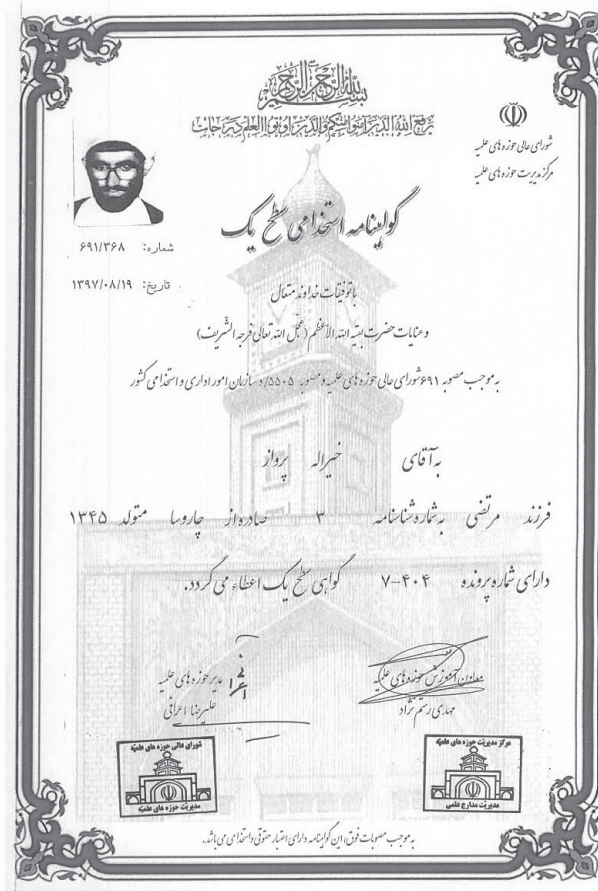 بسم الله الرحمن الرحیم
یرفع الله الذین آمنوا منکم والذین اوتوا العلم درجات
شورای عالی حوزه های علمیه
مرکز مدیریت حوزه های علمیه
گواهینامه استخدامی سطح یک
شماره: ۶۹۱/۳۶۸
تاریخ: ۱۳۹۷/۰۸/۱۹
با توفیقات خداوند متعال
و عنایات حضرت بقیه الله الأعظم (عجل الله تعالی فرجه الشریف)
به موجب مصوبه ۶۹۱ شورای عالی حوزه های علمیه و مصوبه ۵۵۰۵/د سازمان امور اداری و استخدامی کشور
به آقای خیراله پرواز
فرزند مرتضی به شماره شناسنامه ۳ صادره از چاروسا متولد ۱۳۴۵
دارای شماره پرونده ۷-۴۰۴ گواهی سطح یک اعطاء می گردد.
معاون آموزش حوزه های علمیه
مهدی رستم نژاد
مدیر حوزه های علمیه
علیرضا اعرافی
مرکز مدیریت حوزه های علمیه
مدیریت مدارج علمی
شورای عالی حوزه های علمیه
مدیریت حوزه های علمیه
به موجب مصوبات فوق، این گواهینامه دارای اعتبار حقوقی و استخدامی می باشد.